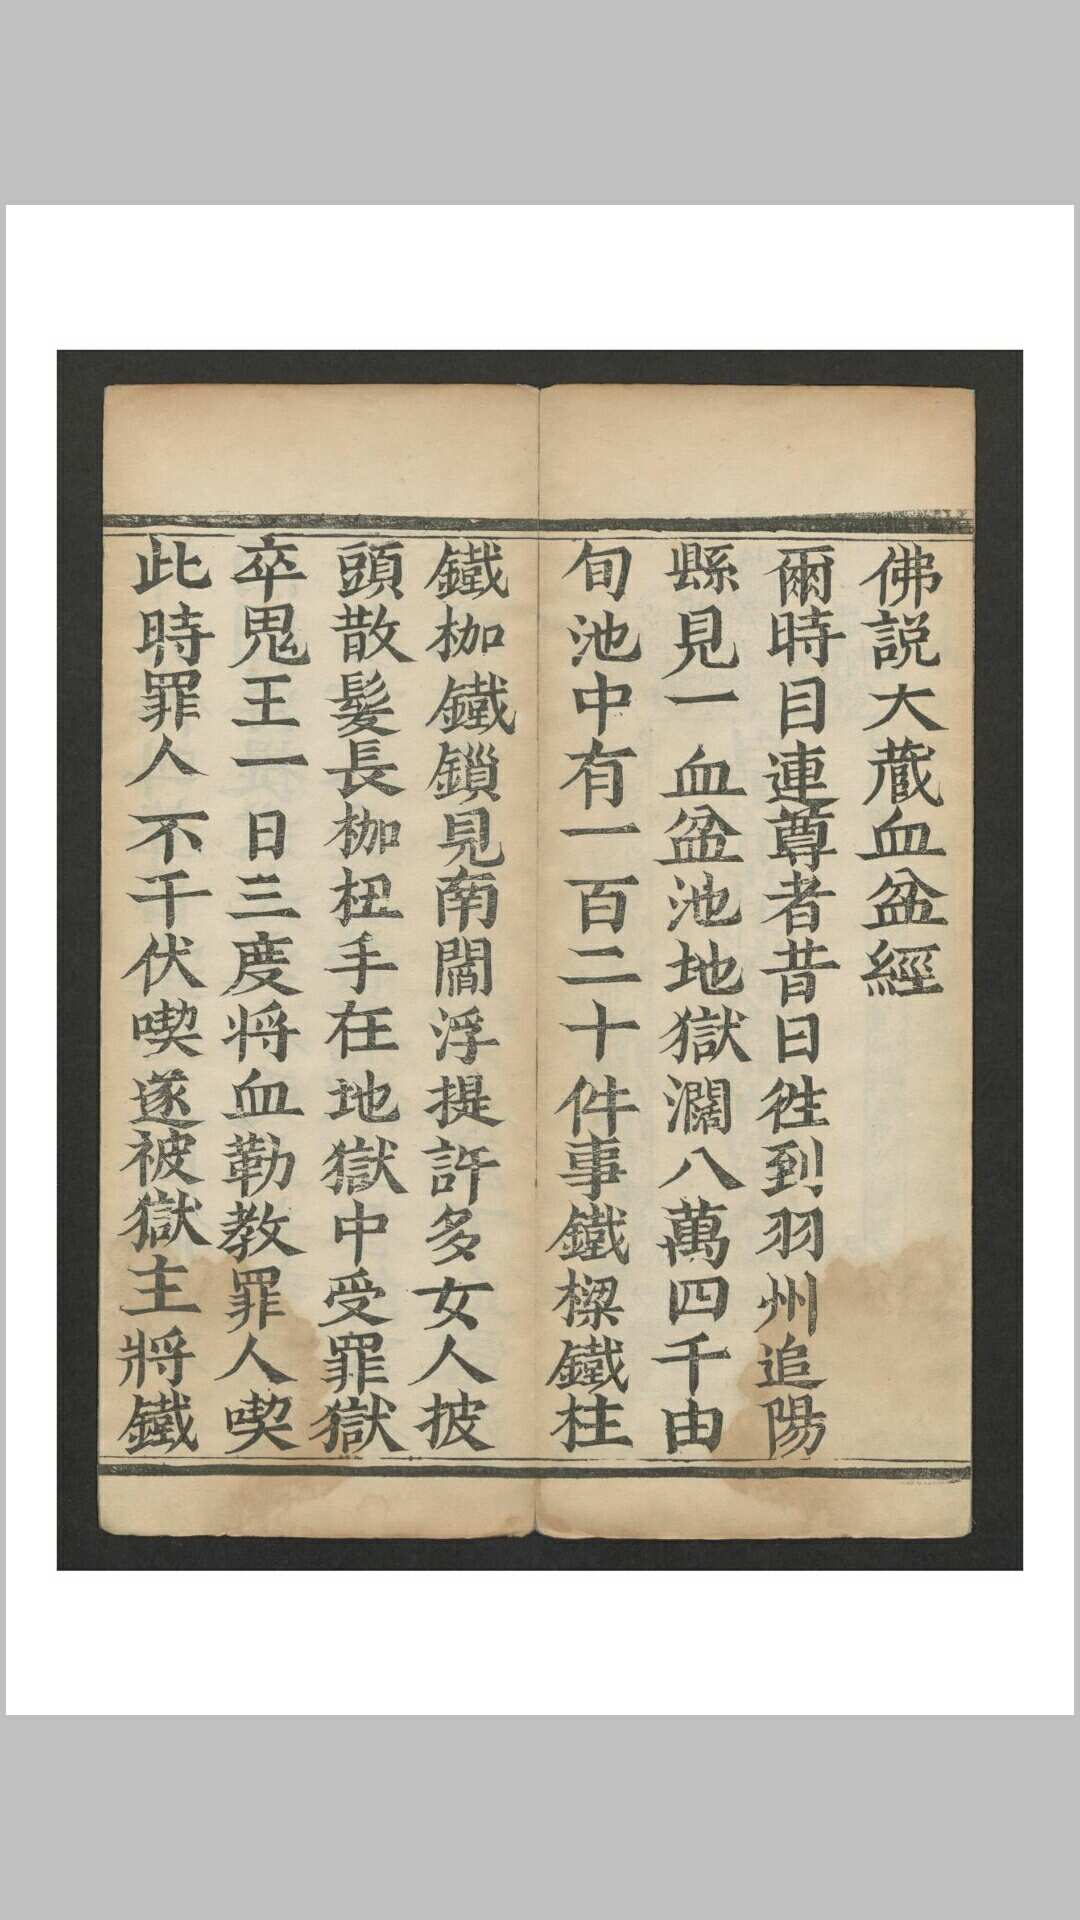 佛説大藏血盆經
爾時目連尊者昔日徃到羽州追陽
縣見一血盆池地獄濶八萬四千由
旬池中有一百二十件事鐵樑鐵柱
鐵枷鐵鎻見南閻浮提許多女人披
頭散髮長枷杻手在地獄中受罪獄
卒鬼王一日三度将血勒教罪人喫
此時罪人不干伏喫遂被獄主將鐵